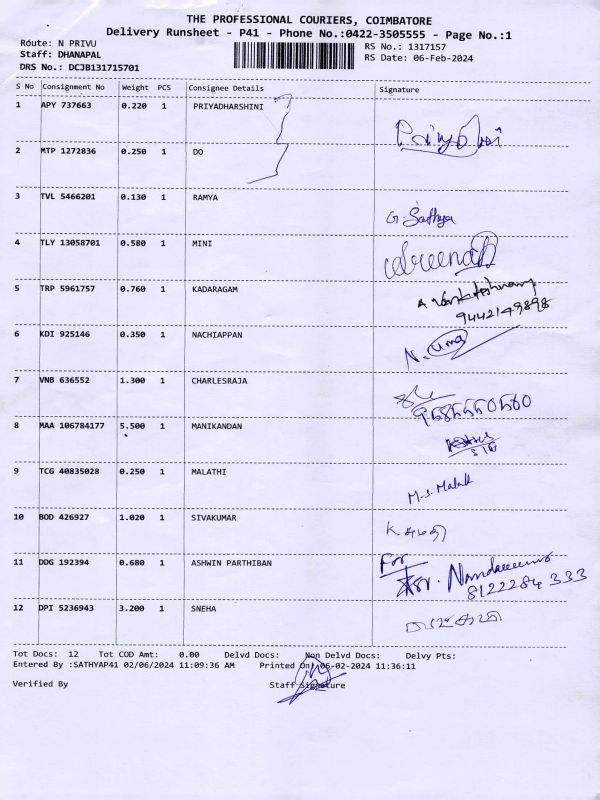 THE PROFESSIONAL COURIERS, COIMBATORE
Delivery Runsheet - P41 - Phone No.:0422-3505555 - Page No.:1
Route: N PRIVU RS No.: 1317157
Staff: DHANAPAL RS Date: 06-Feb-2024
DRS No.: DCJB131715701
S No Consignment No Weight PCS Consignee Details Signature
1 APY 737663 0.220 1 PRIYADHARSHINI
2 MTP 1272836 0.250 1 DO
3 TVL 5466201 0.130 1 RAMYA G. Sathya
4 TLY 13058701 0.580 1 MINI
5 TRP 5961757 0.760 1 KADARAGAM A
9442149898
6 KDI 925146 0.350 1 NACHIAPPAN N. Uma
7 VNB 636552 1.300 1 CHARLESRAJA
8 MAA 106784177 5.500 1 MANIKANDAN
9 TCG 40835028 0.250 1 MALATHI
10 BOD 426927 1.020 1 SIVAKUMAR
11 DDG 192394 0.680 1 ASHWIN PARTHIBAN For
8122284333
12 DPI 5236943 3.200 1 SNEHA
Tot Docs: 12 Tot COD Amt: 0.00 Delvd Docs: Non Delvd Docs: Delvy Pts:
Entered By :SATHYAP41 02/06/2024 11:09:36 AM Printed On: 06-02-2024 11:36:11
Verified By Staff Signature